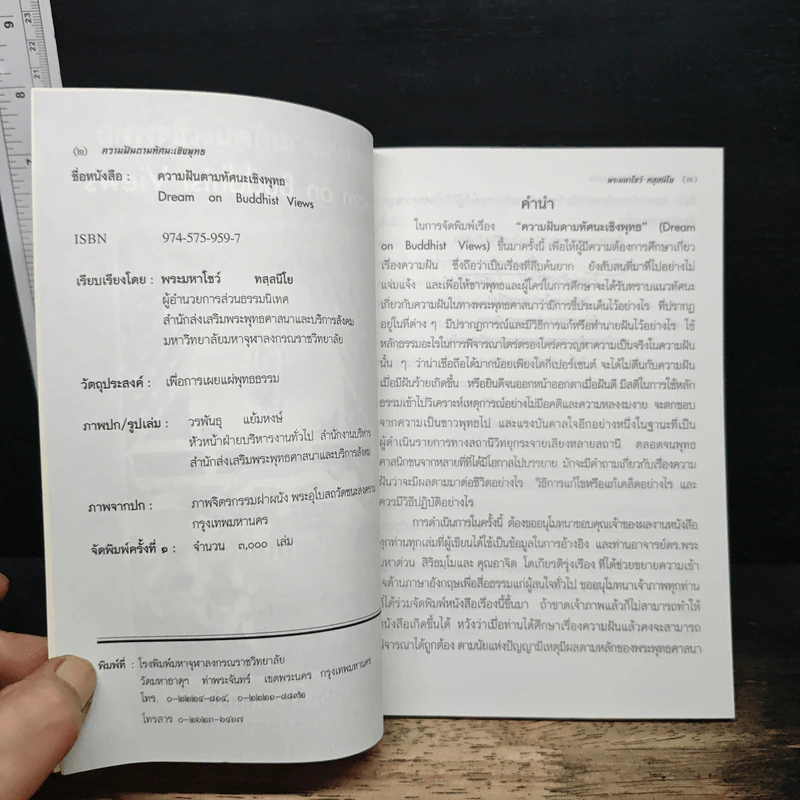 (๒) ความฝันตามทัศนะเชิงพุทธ
ชื่อหนังสือ : ความฝันตามทัศนะเชิงพุทธ
Dream on Buddhist Views
ISBN 974-575-959-7
เรียบเรียงโดย : พระมหาโชว์ ทสฺสนีโย
ผู้อำนวยการส่วนธรรมนิเทศ
สำนักส่งเสริมพระพุทธศาสนาและบริการสังคม
มหาวิทยาลัยมหาจุฬาลงกรณราชวิทยาลัย
วัตถุประสงค์ : เพื่อการเผยแผ่พุทธธรรม
ภาพปก/รูปเล่ม : วรพันธุ แย้มหงษ์
หัวหน้าฝ่ายบริหารงานทั่วไป สำนักงานบริหาร
สำนักส่งเสริมพระพุทธศาสนาและบริการสังคม
ภาพจากปก : ภาพจิตรกรรมฝาผนัง พระอุโบสถวัดชนะสงคราม
กรุงเทพมหานคร
จัดพิมพ์ครั้งที่ ๑ : จำนวน ๓,๐๐๐ เล่ม
พิมพ์ที่ : โรงพิมพ์มหาจุฬาลงกรณราชวิทยาลัย
วัดมหาธาตุฯ ท่าพระจันทร์ เขตพระนคร กรุงเทพมหานคร
โทร. ๐-๒๒๒๔-๘๑๔, ๐-๒๒๒๑-๘๘๙๒
โทรสาร ๐-๒๖๒๓-๖๔๑๗
พระมหาโชว์ ทสฺสนีโย (๓)
คำนำ
ในการจัดพิมพ์เรื่อง "ความฝันตามทัศนะเชิงพุทธ" (Dream
on Buddhist Views) ขึ้นมาครั้งนี้ เพื่อให้ผู้มีความต้องการศึกษาเกี่ยว
เรื่องความฝัน ซึ่งถือว่าเป็นเรื่องที่ลึบค้นยาก ยังสับสนที่มาที่ไปอย่างไม่
แจ่มแจ้ง และเพื่อให้ชาวพุทธและผู้ใคร่ในการศึกษาจะได้รับทราบแนวทัศนะ
เกี่ยวกับความฝันในทางพระพุทธศาสนาว่ามีการชี้ประเด็นไว้อย่างไร ที่ปรากฏ
อยู่ในที่ต่าง ๆ มีปรากฏการณ์และมีวิธีการแก้หรือทำนายฝันไว้อย่างไร ใช้
หลักธรรมอะไรในการพิจารณาไตร่ตรองใคร่ครวญหาความเป็นจริงในความฝัน
นั้น ๆ ว่าน่าเชื่อถือได้มากน้อยเพียงใดกี่เปอร์เซนต์ จะได้ไม่ตื่นกับความฝัน
เมื่อมีฝันร้ายเกิดขึ้น หรือยินดีจนออกหน้าออกตาเมื่อฝันดี มีสติในการใช้หลัก
ธรรมเข้าไปวิเคราะห์เหตุการณ์อย่างไม่มีอคติและความหลงงมงาย จะตกขอบ
จากความเป็นชาวพุทธไป และแรงบันดาลใจอีกอย่างหนึ่งในฐานะที่เป็น
ผู้ดำเนินรายการทางสถานีวิทยุกระจายเสียงหลายสถานี ตลอดจนพุทธ
ศาสนิกชนจากหลายที่ที่ได้มีโอกาสไปบรรยาย มักจะมีคำถามเกี่ยวกับเรื่องความ
ฝันว่าจะมีผลตามมาต่อชีวิตอย่างไร วิธีการแก้ไขหรือแก้เคล็ดอย่างไร และ
ควรมีวิธีปฏิบัติอย่างไร
การดำเนินการในครั้งนี้ ต้องขออนุโมทนาขอบคุณเจ้าของผลงานหนังสือ
ทุกท่านทุกเล่มที่ผู้เขียนได้ใช้เป็นข้อมูลในการอ้างอิง และท่านอาจารย์ดร.พระ
มหาต่วน สิริธมฺโมและ คุณอาจิต โตเกียรติรุ่งเรือง ที่ได้ช่วยขยายความเข้า
ใจด้านภาษาอังกฤษเพื่อสื่อธรรมแก่ผู้สนใจทั่วไป ขออนุโมทนาเจ้าภาพทุกท่าน
ที่ได้ร่วมจัดพิมพ์หนังสือเรื่องนี้ขึ้นมา ถ้าขาดเจ้าภาพแล้วก็ไม่สามารถทำให้
หนังสือเกิดขึ้นได้ หวังว่าเมื่อท่านได้ศึกษาเรื่องความฝันแล้วคงจะสามารถ
พิจารณาได้ถูกต้อง ตามนัยแห่งปัญญามีเหตุมีผลตามหลักของพระพุทธศาสนา
9
8
23
22
21